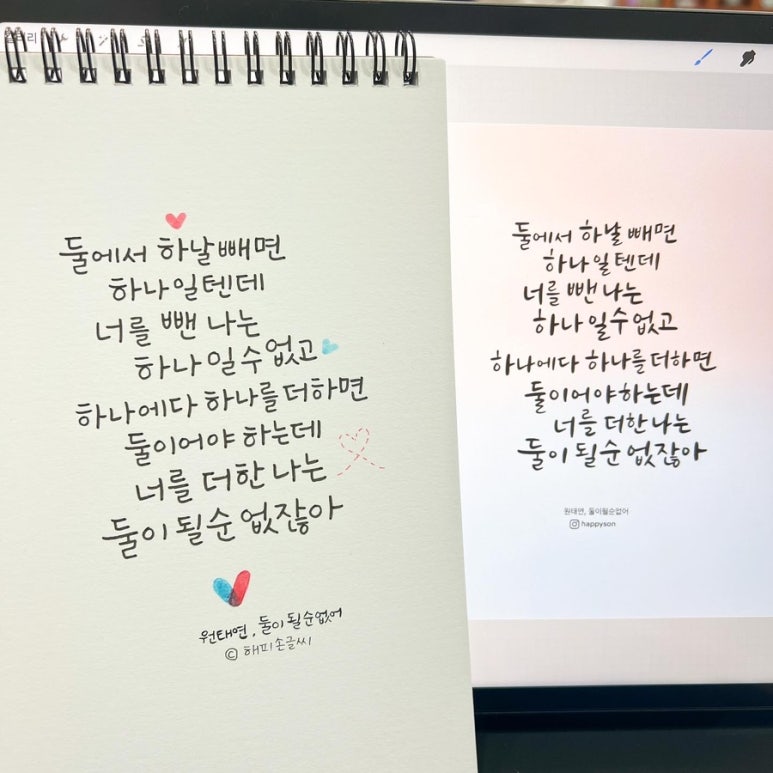 둘에서 하날 빼면
하나일텐데
너를 뺀 나는
하나 일수 없고
하나에다 하나를 더하면
둘이어야 하는데
너를 더한 나는
둘이 될 순 없잖아
원태연, 둘이 될 순 없어
© 해피손글씨
둘에서 하날 빼면
하나일텐데
너를 뺀 나는
하나 일수 없고
하나에다 하나를 더하면
둘이어야 하는데
너를 더한 나는
둘이 될 순 없잖아
원태연, 둘이될순없어
happyson